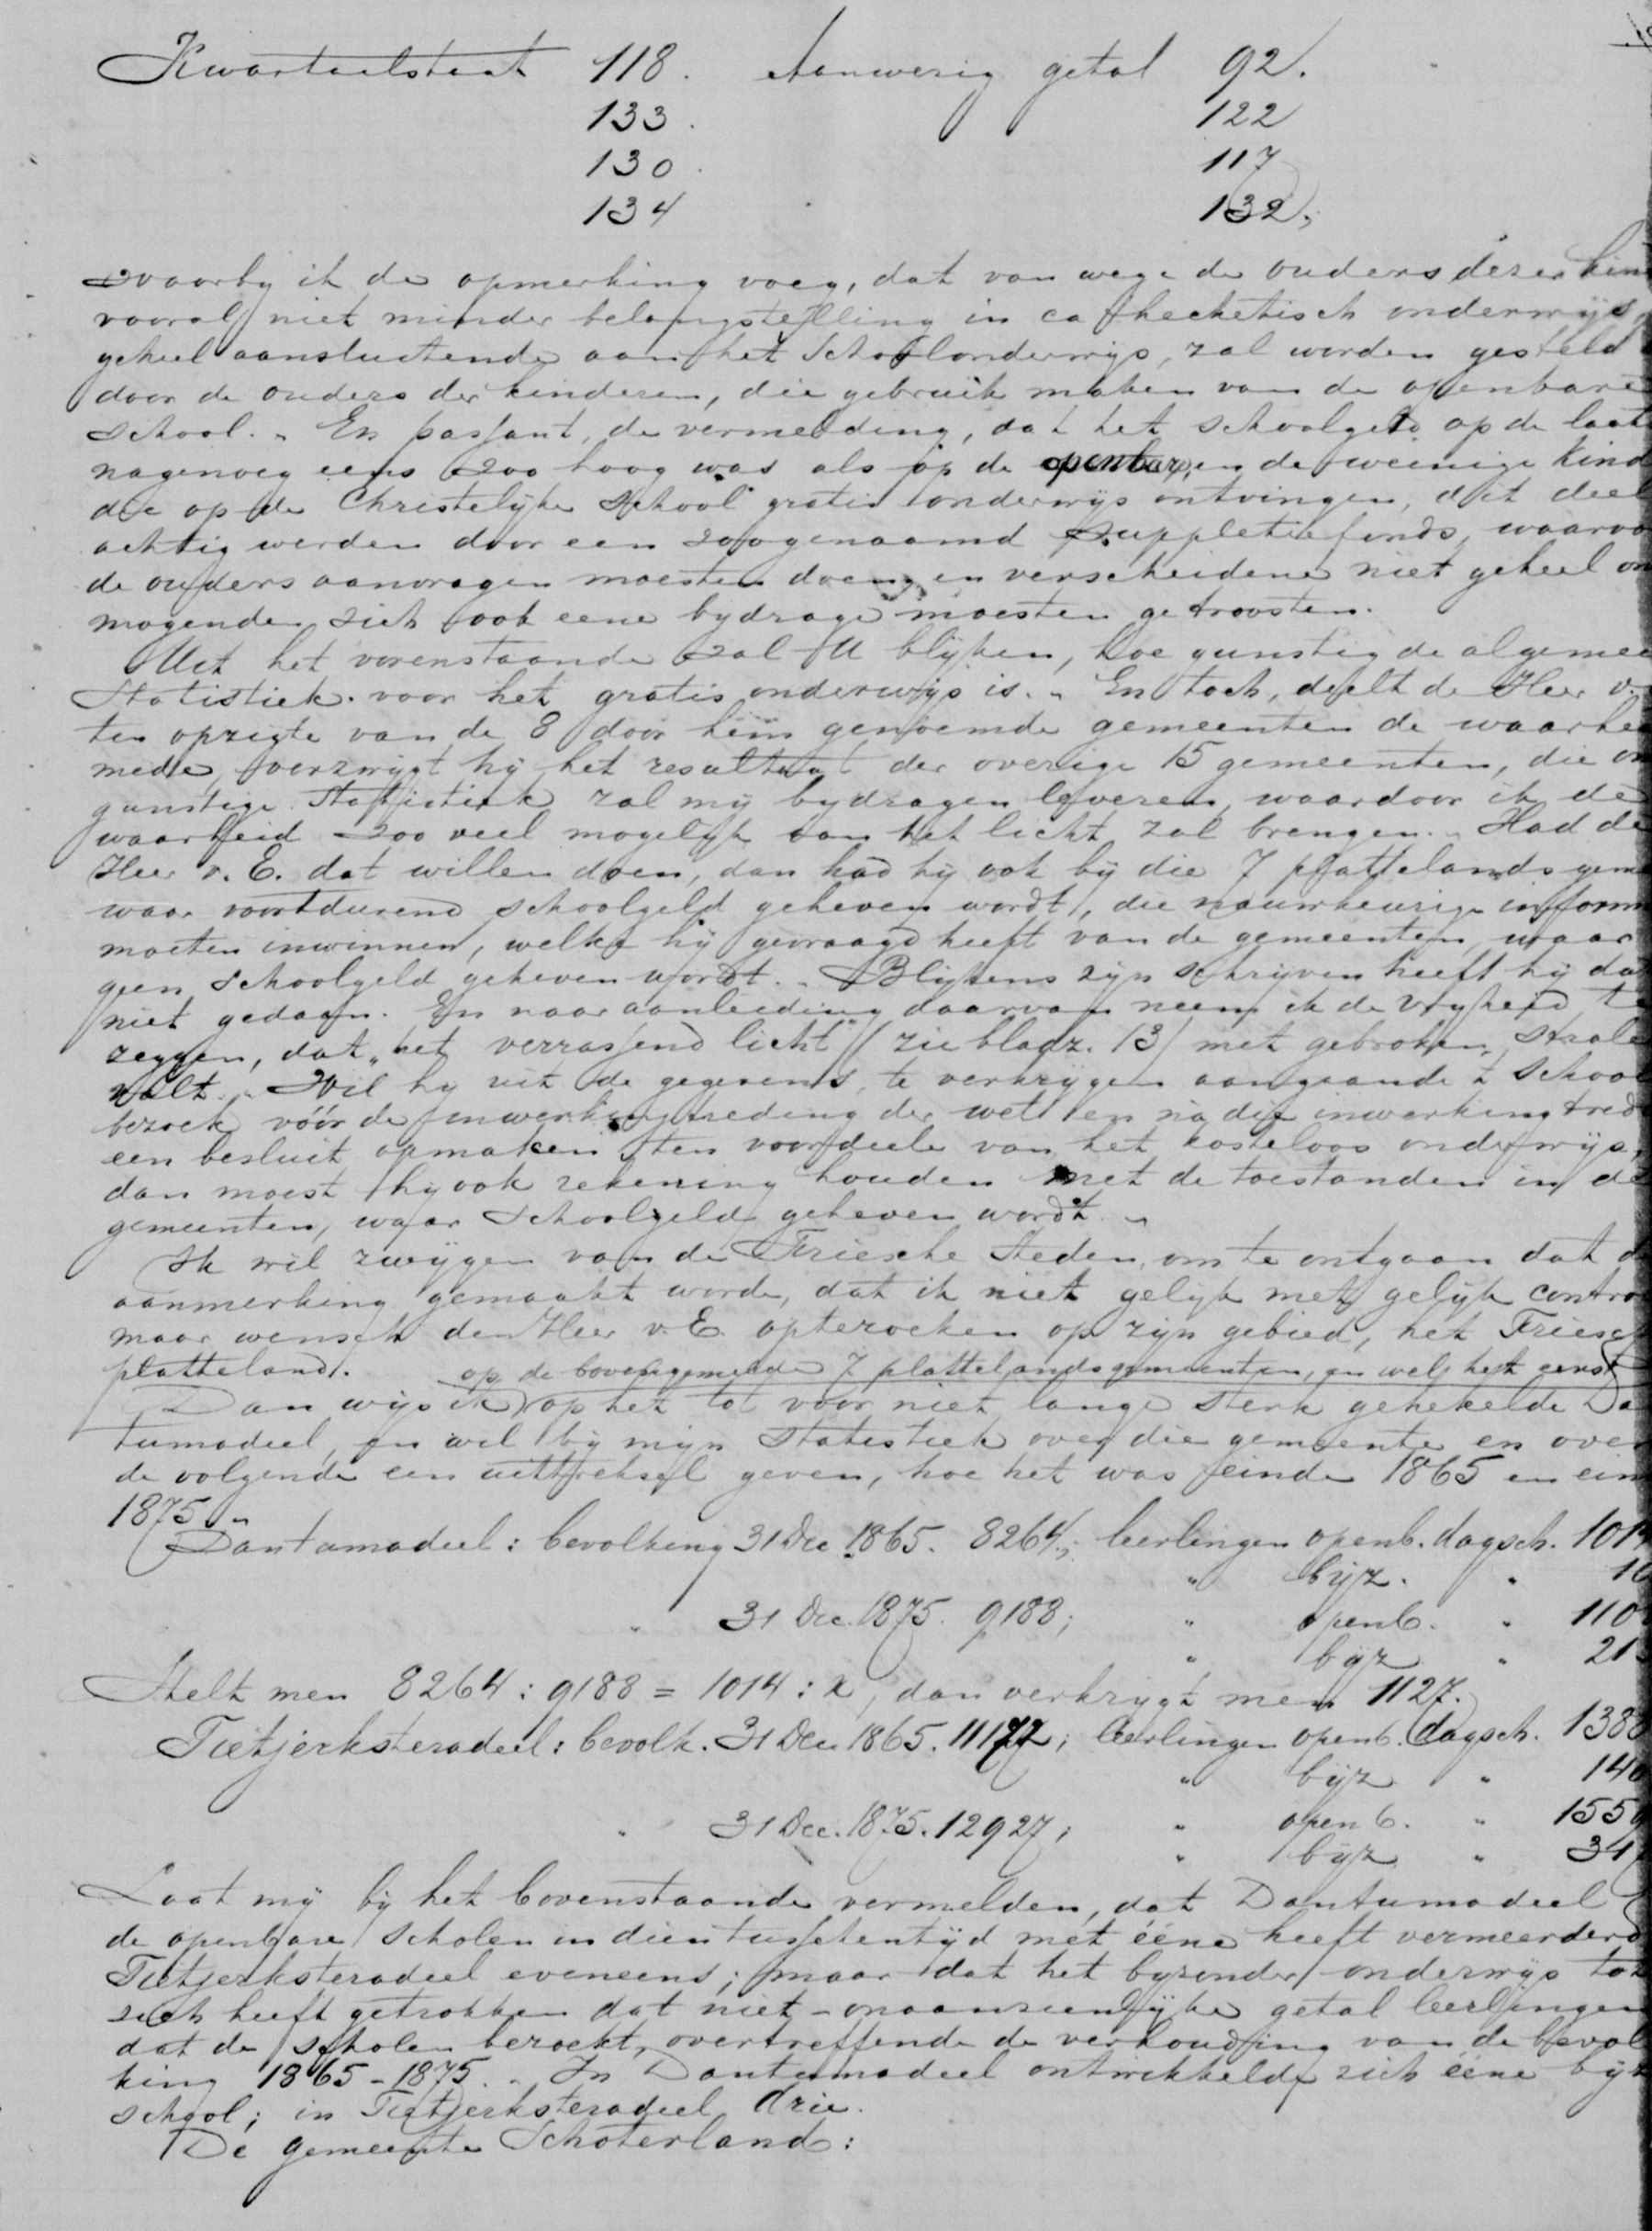 Kwartaalstaat 118. Aanwezig getal 92.
133. 122
130. 117
134 132;
waarby ik de opmerking voeg, dat van wege de ouders dezer kin
vooral niet minder belangstelling in cathechetisch onderwijs,
geheel aansluitende aan het Schoolonderwijs, zal worden gesteld
door de ouders der kinderen, die gebruik maken van de openbare
school. „ En passant, de vermelding, dat het schoolgeld op de laat
nagenoeg eens zoo hoog was als op de openbare, en de weinige kind
die op de Christelijke School gratis onderwijs ontvingen, dit deel
achtig werden door een zoogenaamd Suppletiefonds, waarvo
de ouders aanvragen moesten doen, en verscheidene niet geheel on
mogenden zich ook eene bydrage moesten getroosten.
Uit het vorenstaande zal U blijken, hoe gunstig de algemee
Statistiek voor het gratis onderwijs is. „ En toch, deelt de Heer v.
ten opzigte van de 8 door hem genoemde gemeenten de waarhe
mede, verzwijgt hij het resultaat der overige 15 gemeenten, die on
gunstige Statistiek zal mij bydragen leveren, waardoor ik de
waarheid zoo veel mogelijk aan het licht zal brengen. „ Had de
Heer v. E. dat willen doen, dan had hij ook bij die 7 plattelands gem
waar voortdurend schoolgeld geheven wordt, die nauwkeurige inform
moeten inwinnen, welke hij gevraagd heeft van de gemeenten, waar
geen schoolgeld geheven wordt. „ Blijkens zijn schrijven heeft hij da
niet gedaan. En naar aanleiding daarvan neem ik de vryheid t
zeggen, dat „het verrassend licht" (zie bladz. 13) met gebroken Strale
valt. „ Wil hy uit de gegevens, te verkrygen aangaande 't School
bezoek vóór de inwerkingtreding der wet en na die inwerkingtred
een besluit opmaken ten voordeele van het kosteloos onderwijs,
dan moest hy ook rekening houden met de toestanden in de
gemeenten, waar Schoolgeld geheven wordt. „
Ik wil zwijgen van de Friesche Steden, om te ontgaan dat d
aanmerking gemaakt worde, dat ik niet gelijk met gelijk contro
maar wensch den Heer v. E. opte zoeken op zijn gebied, het Friesc
platteland. op de bovengemelde 7 plattelandsgemeenten, en wel het eerst
Dan wijs ik op het tot voor niet lange sterk gehekelde Da
tumadeel, en wil bij mijn Statistiek over die gemeente en over
de volgende een uittreksel geven, hoe het was einde 1865 en ein
1875. „
Dantumadeel: bevolking 31 Dec. 1865. 8264; leerlingen openb. dagsch. 1014
" bijz. " 10
" 31 Dec. 1875. 9188; " openb. " 110
" bijz " 21
Stelt men 8264 : 9188 = 1014 : x, dan verkrygt men 1127.
Tietjerksteradeel: bevolk. 31 Dec 1865. 11172; leerlingen openb. dagsch. 1383
" bijz " 140
" 31 Dec. 1875. 12927; " openb. " 1559
" bijz " 34
Laat mij bij het bovenstaande vermelden, dat Dantumadeel
de openbare scholen in dien tusschentijd met ééne heeft vermeerderd
Tietjerksteradeel eveneens; maar dat het byzonder onderwijs tot
zich heeft getrokken dat niet-onaanzienlijke getal leerlingen
dat de scholen bezoekt, overtreffende de verhouding van de bevol
king 1865-1875. „ In Dantumadeel ontwikkelde zich ééne bijz
school; in Tietjerksteradeel drie.
De gemeente Schoterland: